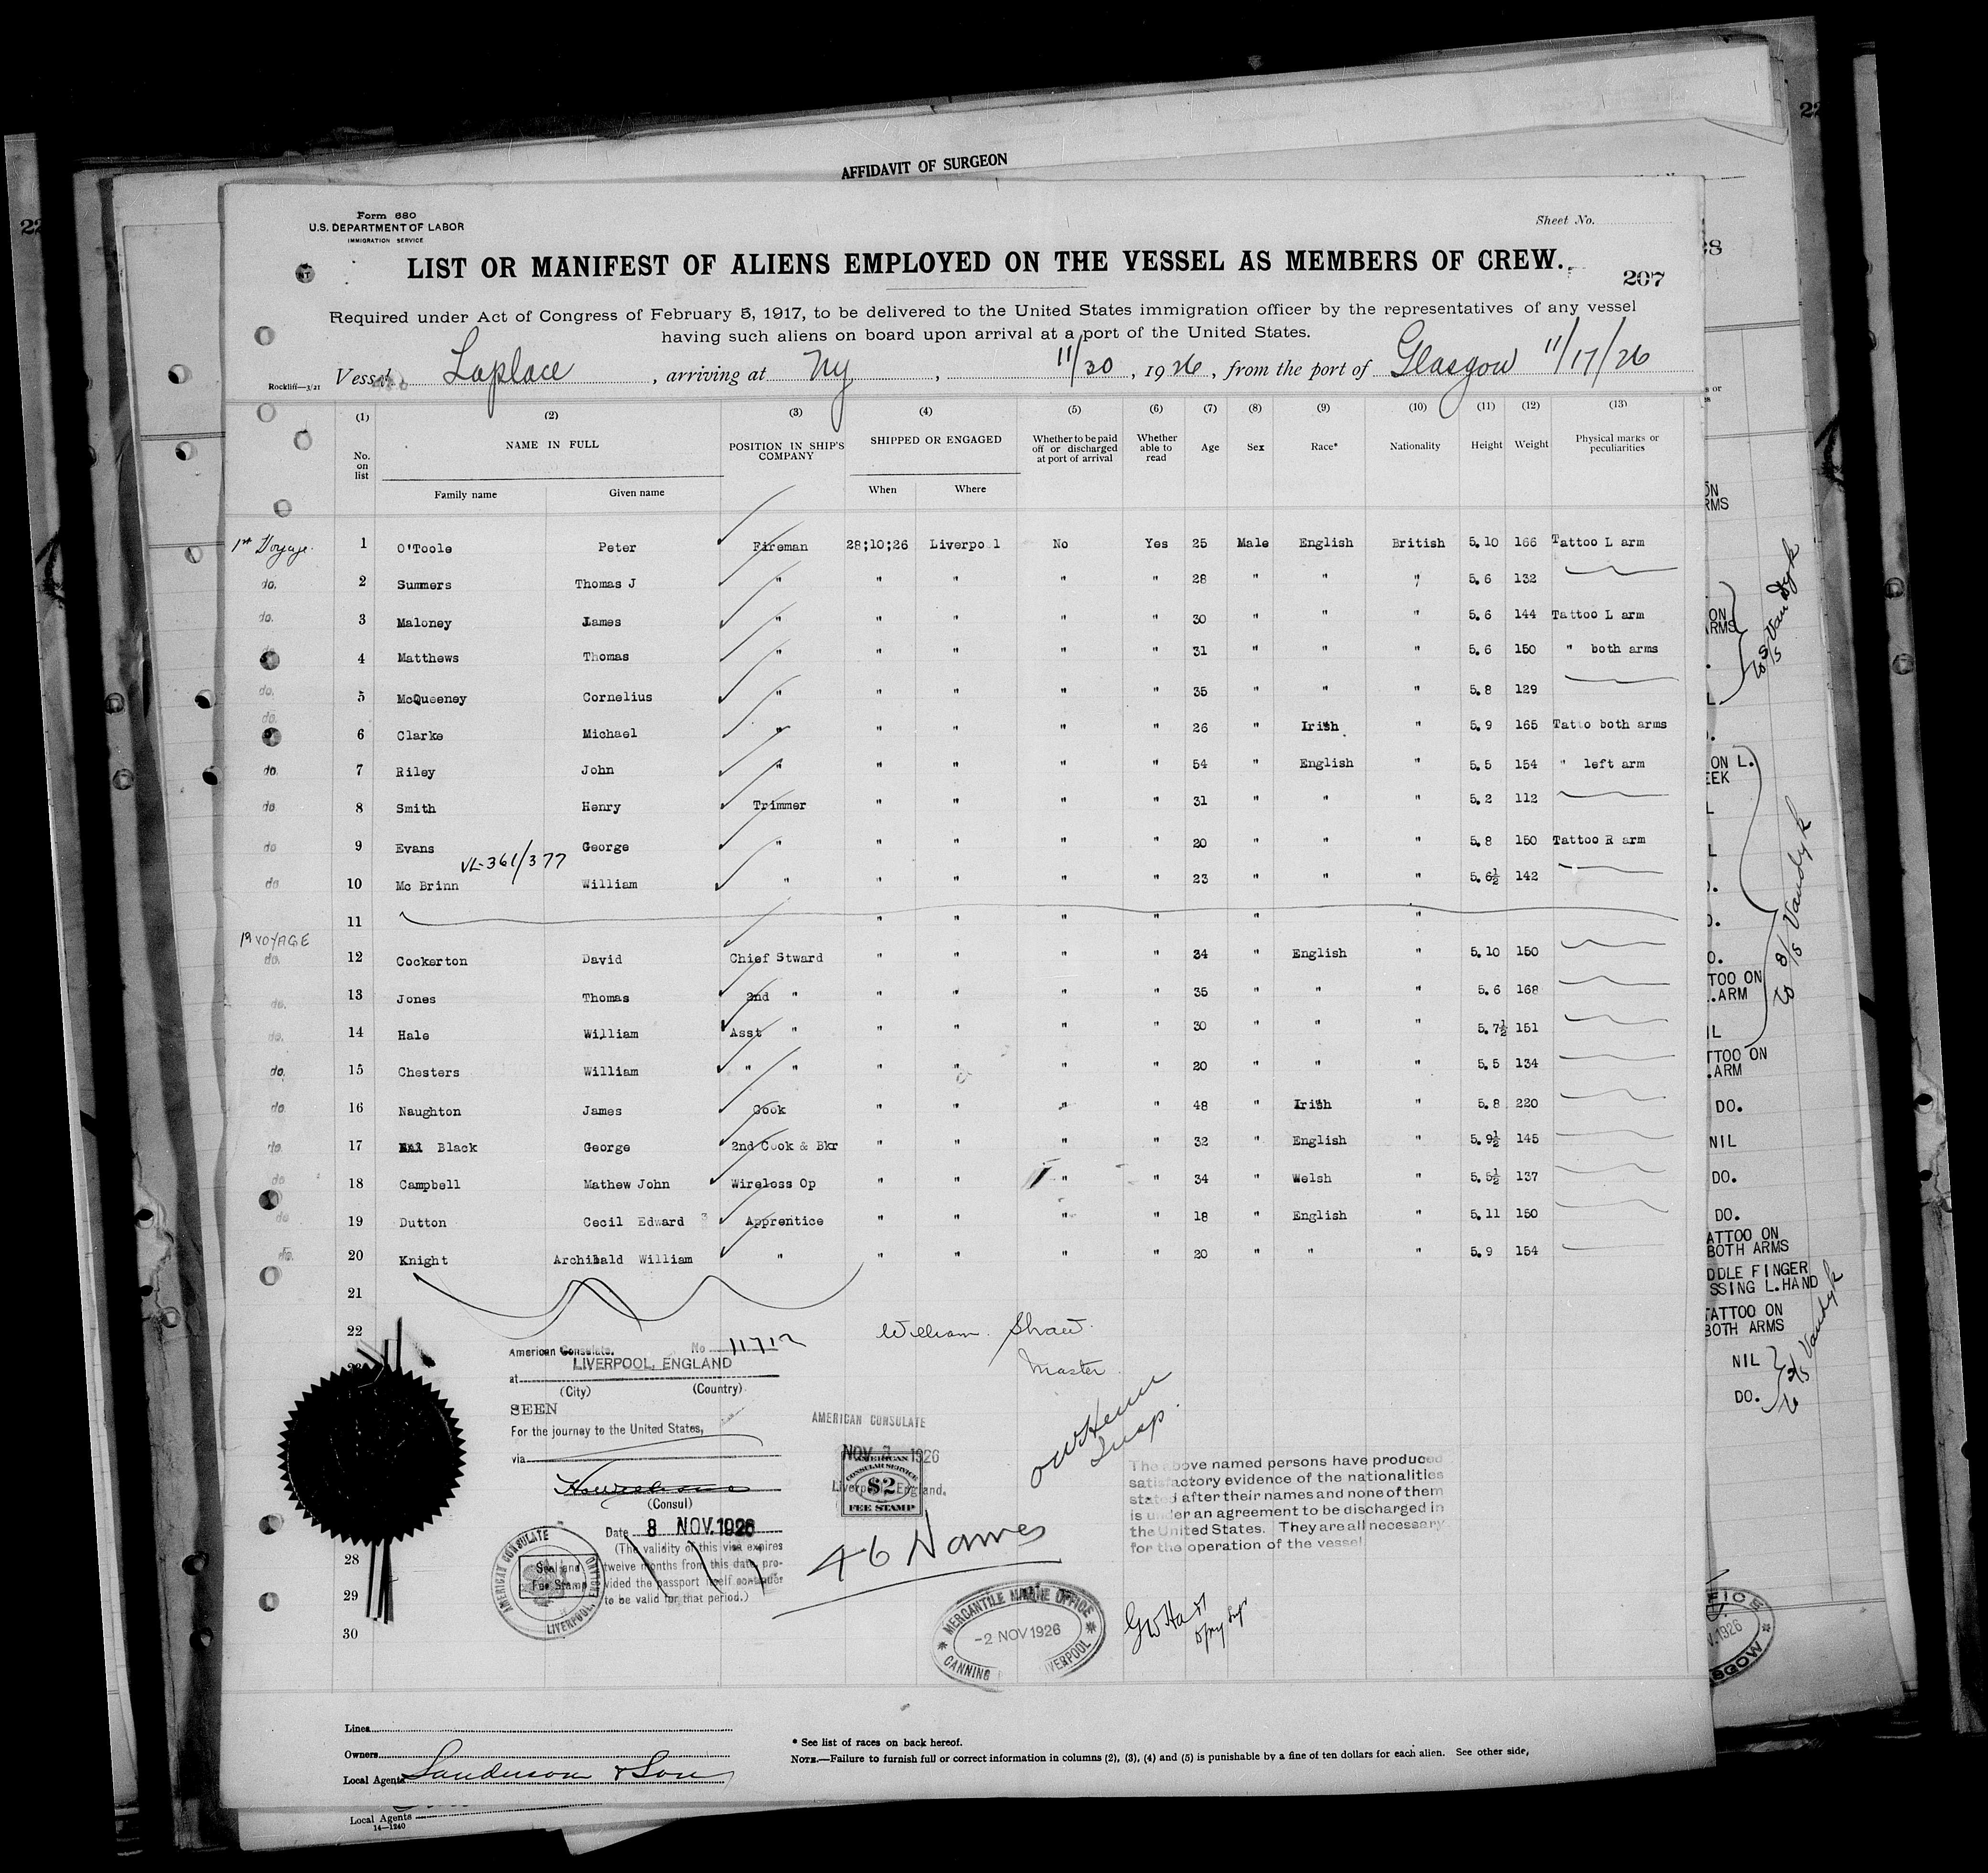 AFFIDAVIT OF SURGEON
Form 680
U.S. DEPARTMENT OF LABOR
IMMIGRATION SERVICE
Sheet No.
LIST OR MANIFEST OF ALIENS EMPLOYED ON THE VESSEL AS MEMBERS OF CREW.
207
Required under Act of Congress of February 5, 1917, to be delivered to the United States immigration officer by the representatives of any vessel
having such aliens on board upon arrival at a port of the United States.
Rockliff—3/21
Vessel Laplace, arriving at Ny, 11/30, 1926, from the port of Glasgow 11/17/26
(1) (2) (3) (4) (5) (6) (7) (8) (9) (10) (11) (12) (13)
No. on list NAME IN FULL POSITION IN SHIP'S COMPANY SHIPPED OR ENGAGED Whether to be paid off or discharged at port of arrival Whether able to read Age Sex Race* Nationality Height Weight Physical marks or peculiarities
Family name Given name When Where
1st Voyage. 1 O'Toole Peter Fireman 28;10;26 Liverpo l No Yes 25 Male English British 5.10 166 Tattoo L arm
do. 2 Summers Thomas J " " " " " 28 " " " 5.6 132
do. 3 Maloney James " " " " " 30 " " " 5.6 144 Tattoo L arm
4 Matthews Thomas " " " " " 31 " " " 5.6 150 " both arms
do. 5 McQueeney Cornelius " " " " " 35 " " " 5.8 129
do. 6 Clarke Michael " " " " " 26 " Irish " 5.9 165 Tatto both arms
do. 7 Riley John " " " " " 54 " English " 5.5 154 " left arm
do. 8 Smith Henry Trimmer " " " " 31 " " " 5.2 112
do 9 Evans George " " " " " 20 " " " 5.8 150 Tattoo R arm
VL-361/377
do 10 Mc Brinn William " " " " " 23 " " " 5.6½ 142
11 " " " " " "
1st VOYAGE
do. 12 Cockerton David Chief Stward " " " " 34 " English " 5.10 150
do. 13 Jones Thomas 2nd " " " " " 35 " " " 5.6 168
do. 14 Hale William Asst " " " " " 30 " " " 5.7½ 151
do. 15 Chesters William " " " " " " 20 " " " 5.5 134
do 16 Naughton James Cook " " " " 48 " Irish " 5.8 220
do 17 Black George 2nd Cook & Bkr " " " " 32 " English " 5.9½ 145
do 18 Campbell Mathew John Wireless Op " " " " 34 " Welsh " 5.5½ 137
do 19 Dutton Cecil Edward Apprentice " " " " 18 " English " 5.11 150
do. 20 Knight Archibald William " " " " " 20 " " " 5.9 154
21
22
William Shaw.
Master
American Consulate, No 11712
at LIVERPOOL, ENGLAND
(City) (Country)
SEEN
For the journey to the United States,
via
(Consul)
Date 8 NOV. 1926
(The validity of this visa expires
twelve months from this date, pro-
vided the passport itself continues
to be valid for that period.)
AMERICAN CONSULATE
LIVERPOOL, ENGLAND
Seal and
Fee Stamp
AMERICAN CONSULATE
NOV 1926
Liverpool, England.
AMERICAN
CONSULAR SERVICE
$2
FEE STAMP
46 Names
Insp.
The above named persons have produced
satisfactory evidence of the nationalities
stated after their names and none of them
is under an agreement to be discharged in
the United States. They are all necessary
for the operation of the vessel
MERCANTILE MARINE OFFICE
-2 NOV 1926
CANNING LIVERPOOL
28
29
30
Lines
Owners
Local Agents Sanderson & Son
* See list of races on back hereof.
NOTE.—Failure to furnish full or correct information in columns (2), (3), (4) and (5) is punishable by a fine of ten dollars for each alien. See other side,
Local Agents
14—1240
ON L.
TOO ON
.ARM
TTOO ON
.ARM
DO.
NIL
DO.
DO.
ATTOO ON
BOTH ARMS
DDLE FINGER
SSING L.HAND
TATTOO ON
BOTH ARMS
NIL
DO.